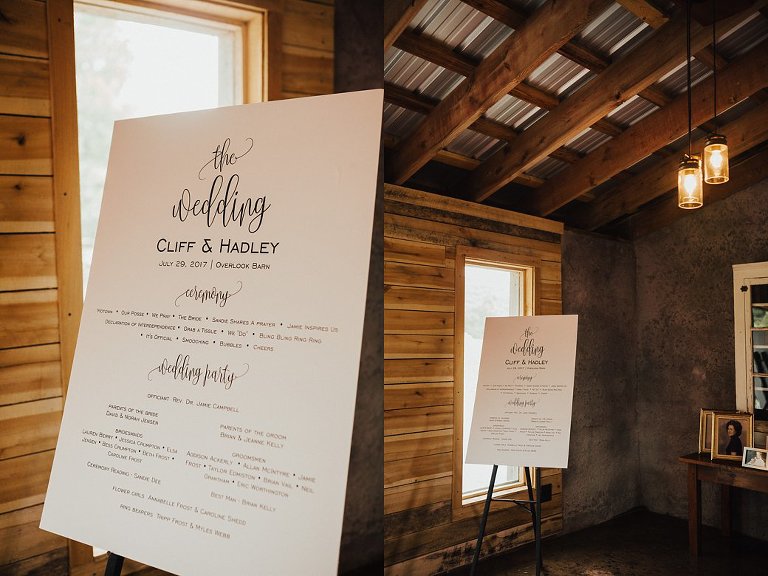 the
wedding
CLIFF & HADLEY
JULY 29, 2017 | OVERLOOK BARN
ceremony
MOTOWN • OUR POSSE • WE PRAY • THE BRIDE • SANDIE SHARES A PRAYER • JAMIE INSPIRES US
DECLARATION OF INTERDEPENDENCE • GRAB A TISSUE • WE "DO" • BLING BLING RING RING
• IT'S OFFICIAL • SMOOCHING • BUBBLES • CHEERS
wedding party
OFFICIANT: REV. DR. JAMIE CAMPBELL
PARENTS OF THE BRIDE
DAVID & NORAH JENSEN
BRIDESMAIDS
LAUREN BERRY • JESSICA CROMPTON • ELSA
JENSEN • BESS GRUMPTON • BETH FROST •
CAROLINE FROST
CEREMONY READING - SANDIE DEE
PARENTS OF THE GROOM
BRIAN & JEANNE KELLY
GROOMSMEN
ADDISON ACKERLY • ALLAN MCINTYRE • JAMIE
FROST • TAYLOR EDMISTON • BRIAN VAIL • NEIL
GRANTHAM • ERIC WORTHINGTON
BEST MAN - BRIAN KELLY
FLOWER GIRLS - ANNABELLE FROST & CAROLINE SHEDD
RING BEARERS - TRIPP FROST & MYLES WEBB
the
wedding
CLIFF & HADLEY
JULY 29, 2017 | OVERLOOK BARN
ceremony
wedding party